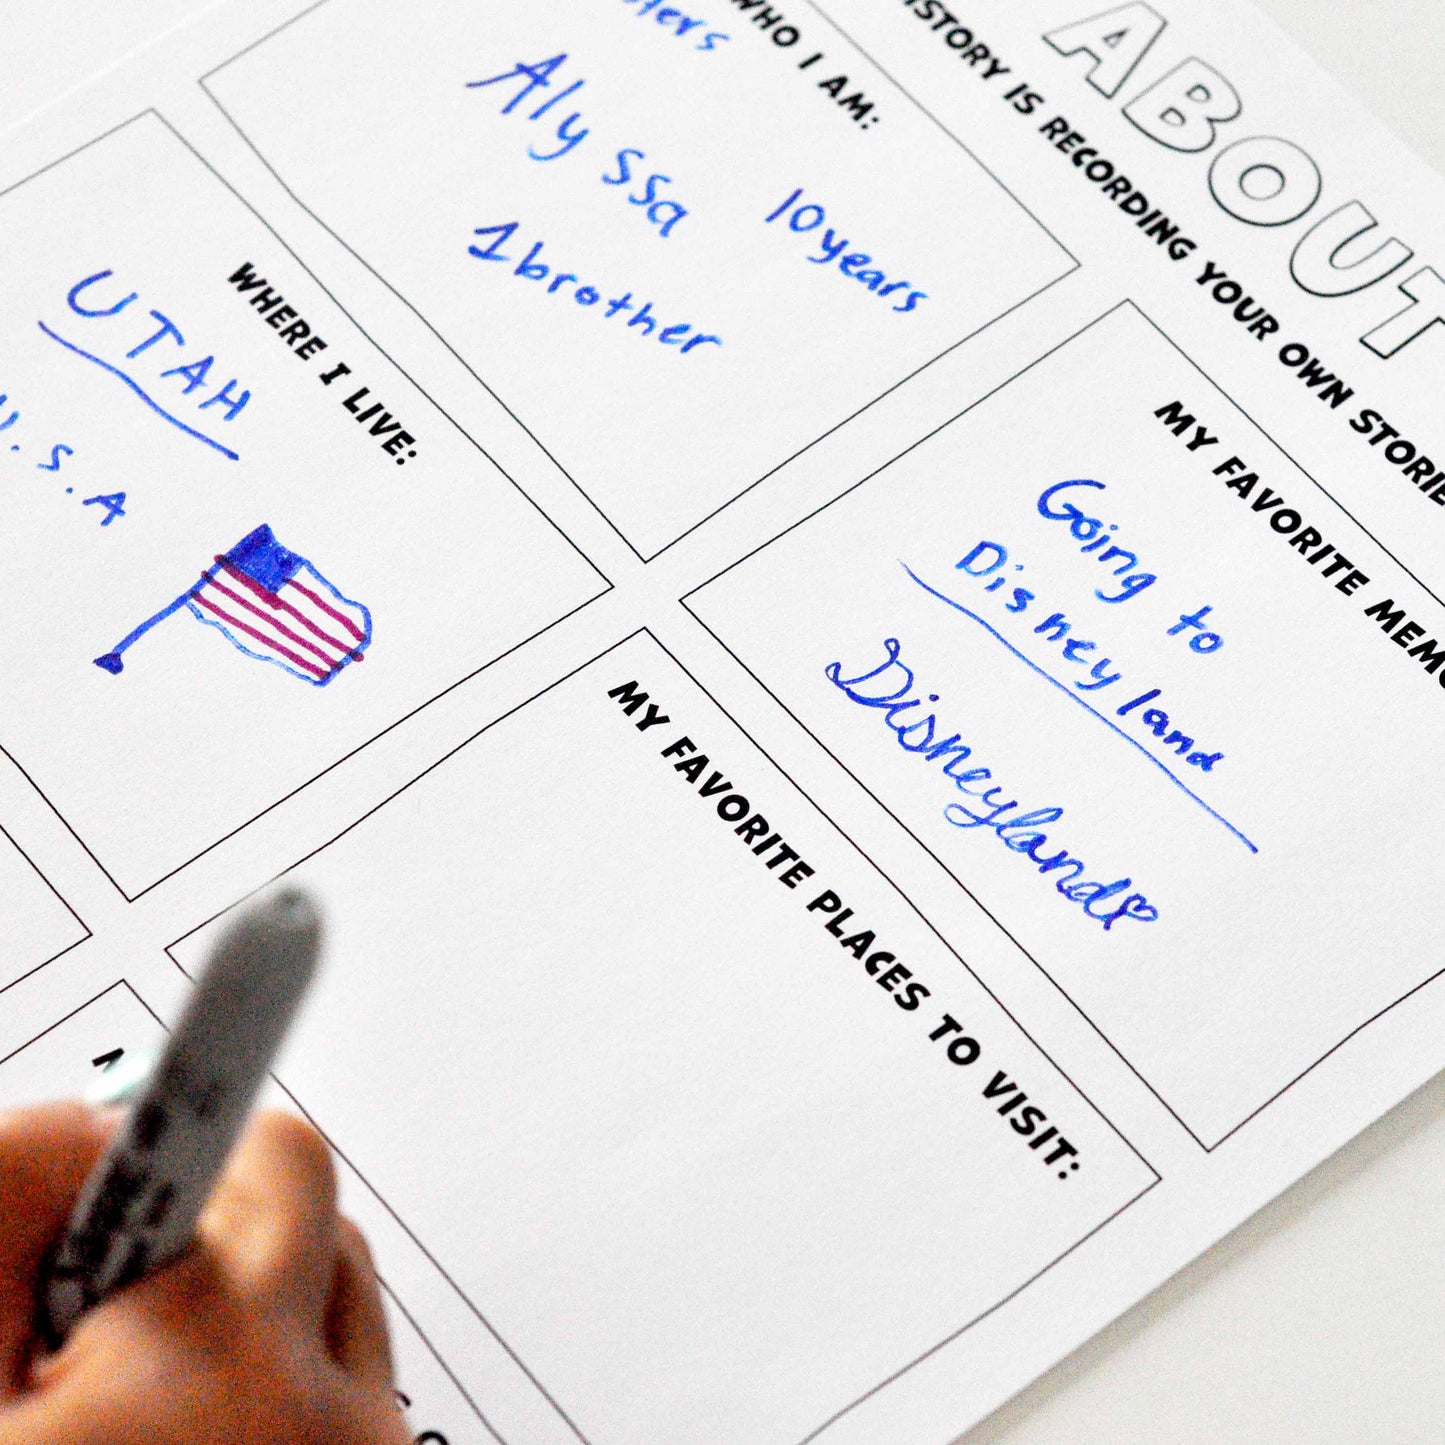 ABOUT
IS RECORDING YOUR OWN
WHO I AM:
Alyssa
10 years
1 brother
WHERE I LIVE:
UTAH
U.S.A
MY FAVORITE
Going to
Disneyland
Disneyland
MY FAVORITE PLACES TO VISIT: